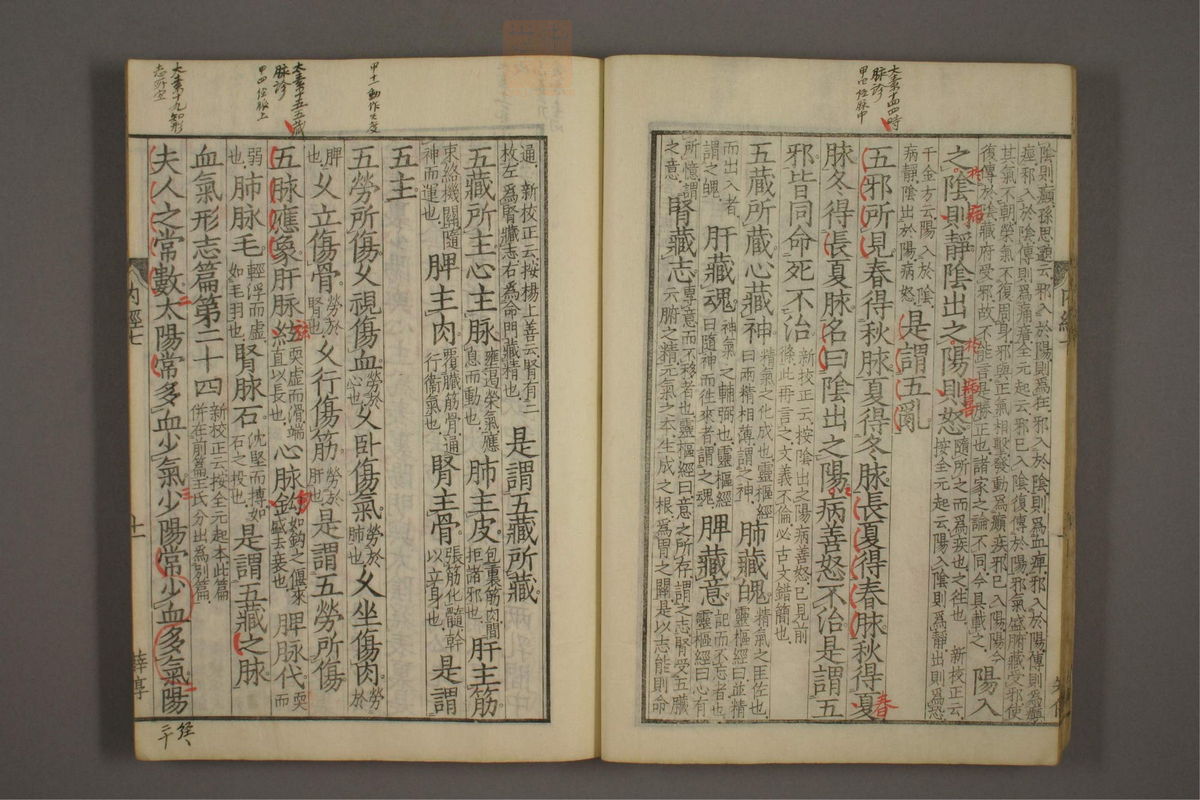 陰則癲孫思邈云邪入於陽則爲狂邪入於陰則爲血痺邪入於陽傳則爲癲
痙邪入於陰傳則爲痛瘖全元起云邪已入陰復傳於陽邪氣盛腑藏受邪使
其氣不朝榮氣不復周身邪與正氣相擊發動爲癲疾邪已入陽陽今
復傳於陰藏府受邪故不能言是勝正也諸家之論不同今具載之 陽入
之陰則靜陰出之陽則怒 隨所之而爲疾也之往也 新校正云按全元起云陽入陰則爲靜出則爲恐
千金方云陽入於陰病靜陰出於陽病怒 是謂五亂
五邪所見春得秋脉夏得冬脉長夏得春脉秋得夏
脉冬得長夏脉名曰陰出之陽病善怒不治是謂五
邪皆同命死不治 新校正云按陰出之陽病善怒已見前條此再言之文義不倫必古文錯簡也
五藏所藏心藏神 精氣之化成也靈樞經曰兩精相薄謂之神 肺藏魄 精氣之匡佐也靈樞經曰並精
而出入者謂之魄 肝藏魂 神氣之輔弼也靈樞經曰隨神而往來者謂之魂 脾藏意 記而不忘者也靈樞經曰心有
所憶謂之意 腎藏志 專意而不移者也靈樞經曰意之所存謂之志腎受五臟六腑之精元氣之本生成之根爲胃之關是以志能則命
太素十四四時
脉診
甲四經脉中
春
通 新校正云按楊上善云腎有二枚左爲腎藏志右爲命門藏精也 是謂五藏所藏
五藏所主心主脉 壅遏榮氣應息而動也 肺主皮 包裹筋肉閒拒諸邪也 肝主筋
束絡機關隨神而運也 脾主肉 覆臟筋骨通行衞氣也 腎主骨 張筋化髓幹以立身也 是謂
五主
五勞所傷久視傷血 勞於心也 久臥傷氣 勞於肺也 久坐傷肉 勞於
脾也 久立傷骨 勞於腎也 久行傷筋 勞於肝也 是謂五勞所傷
五脉應象肝脉絃 耎虛而滑端直以長也 心脉鉤 如鉤之偃來盛去衰也 脾脉代 耎而
弱也 肺脉毛 輕浮而虛如毛羽也 腎脉石 沈堅而搏如石之投也 是謂五藏之脉
血氣形志篇第二十四 新校正云按全元起本此篇併在前篇王氏分出爲別篇
夫人之常數太陽常多血少氣少陽常少血多氣陽
內經七
十一
甲十一動作失度
太素十五五藏
脉診
甲四經脉上
太素十九知形
志所宜